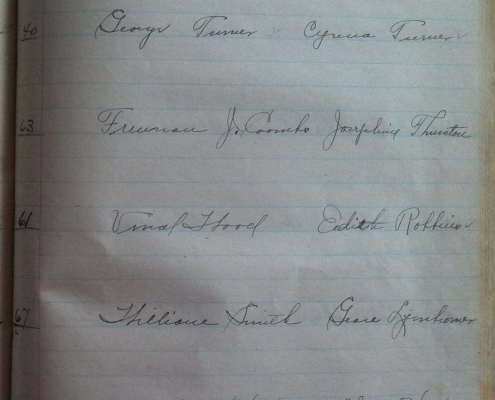 40 George Turner Cyrena Turner
63 Freeman J. Coombs Josephine Thurston
61 Vinal Hood Edith Robbins
67 William Smith Grace